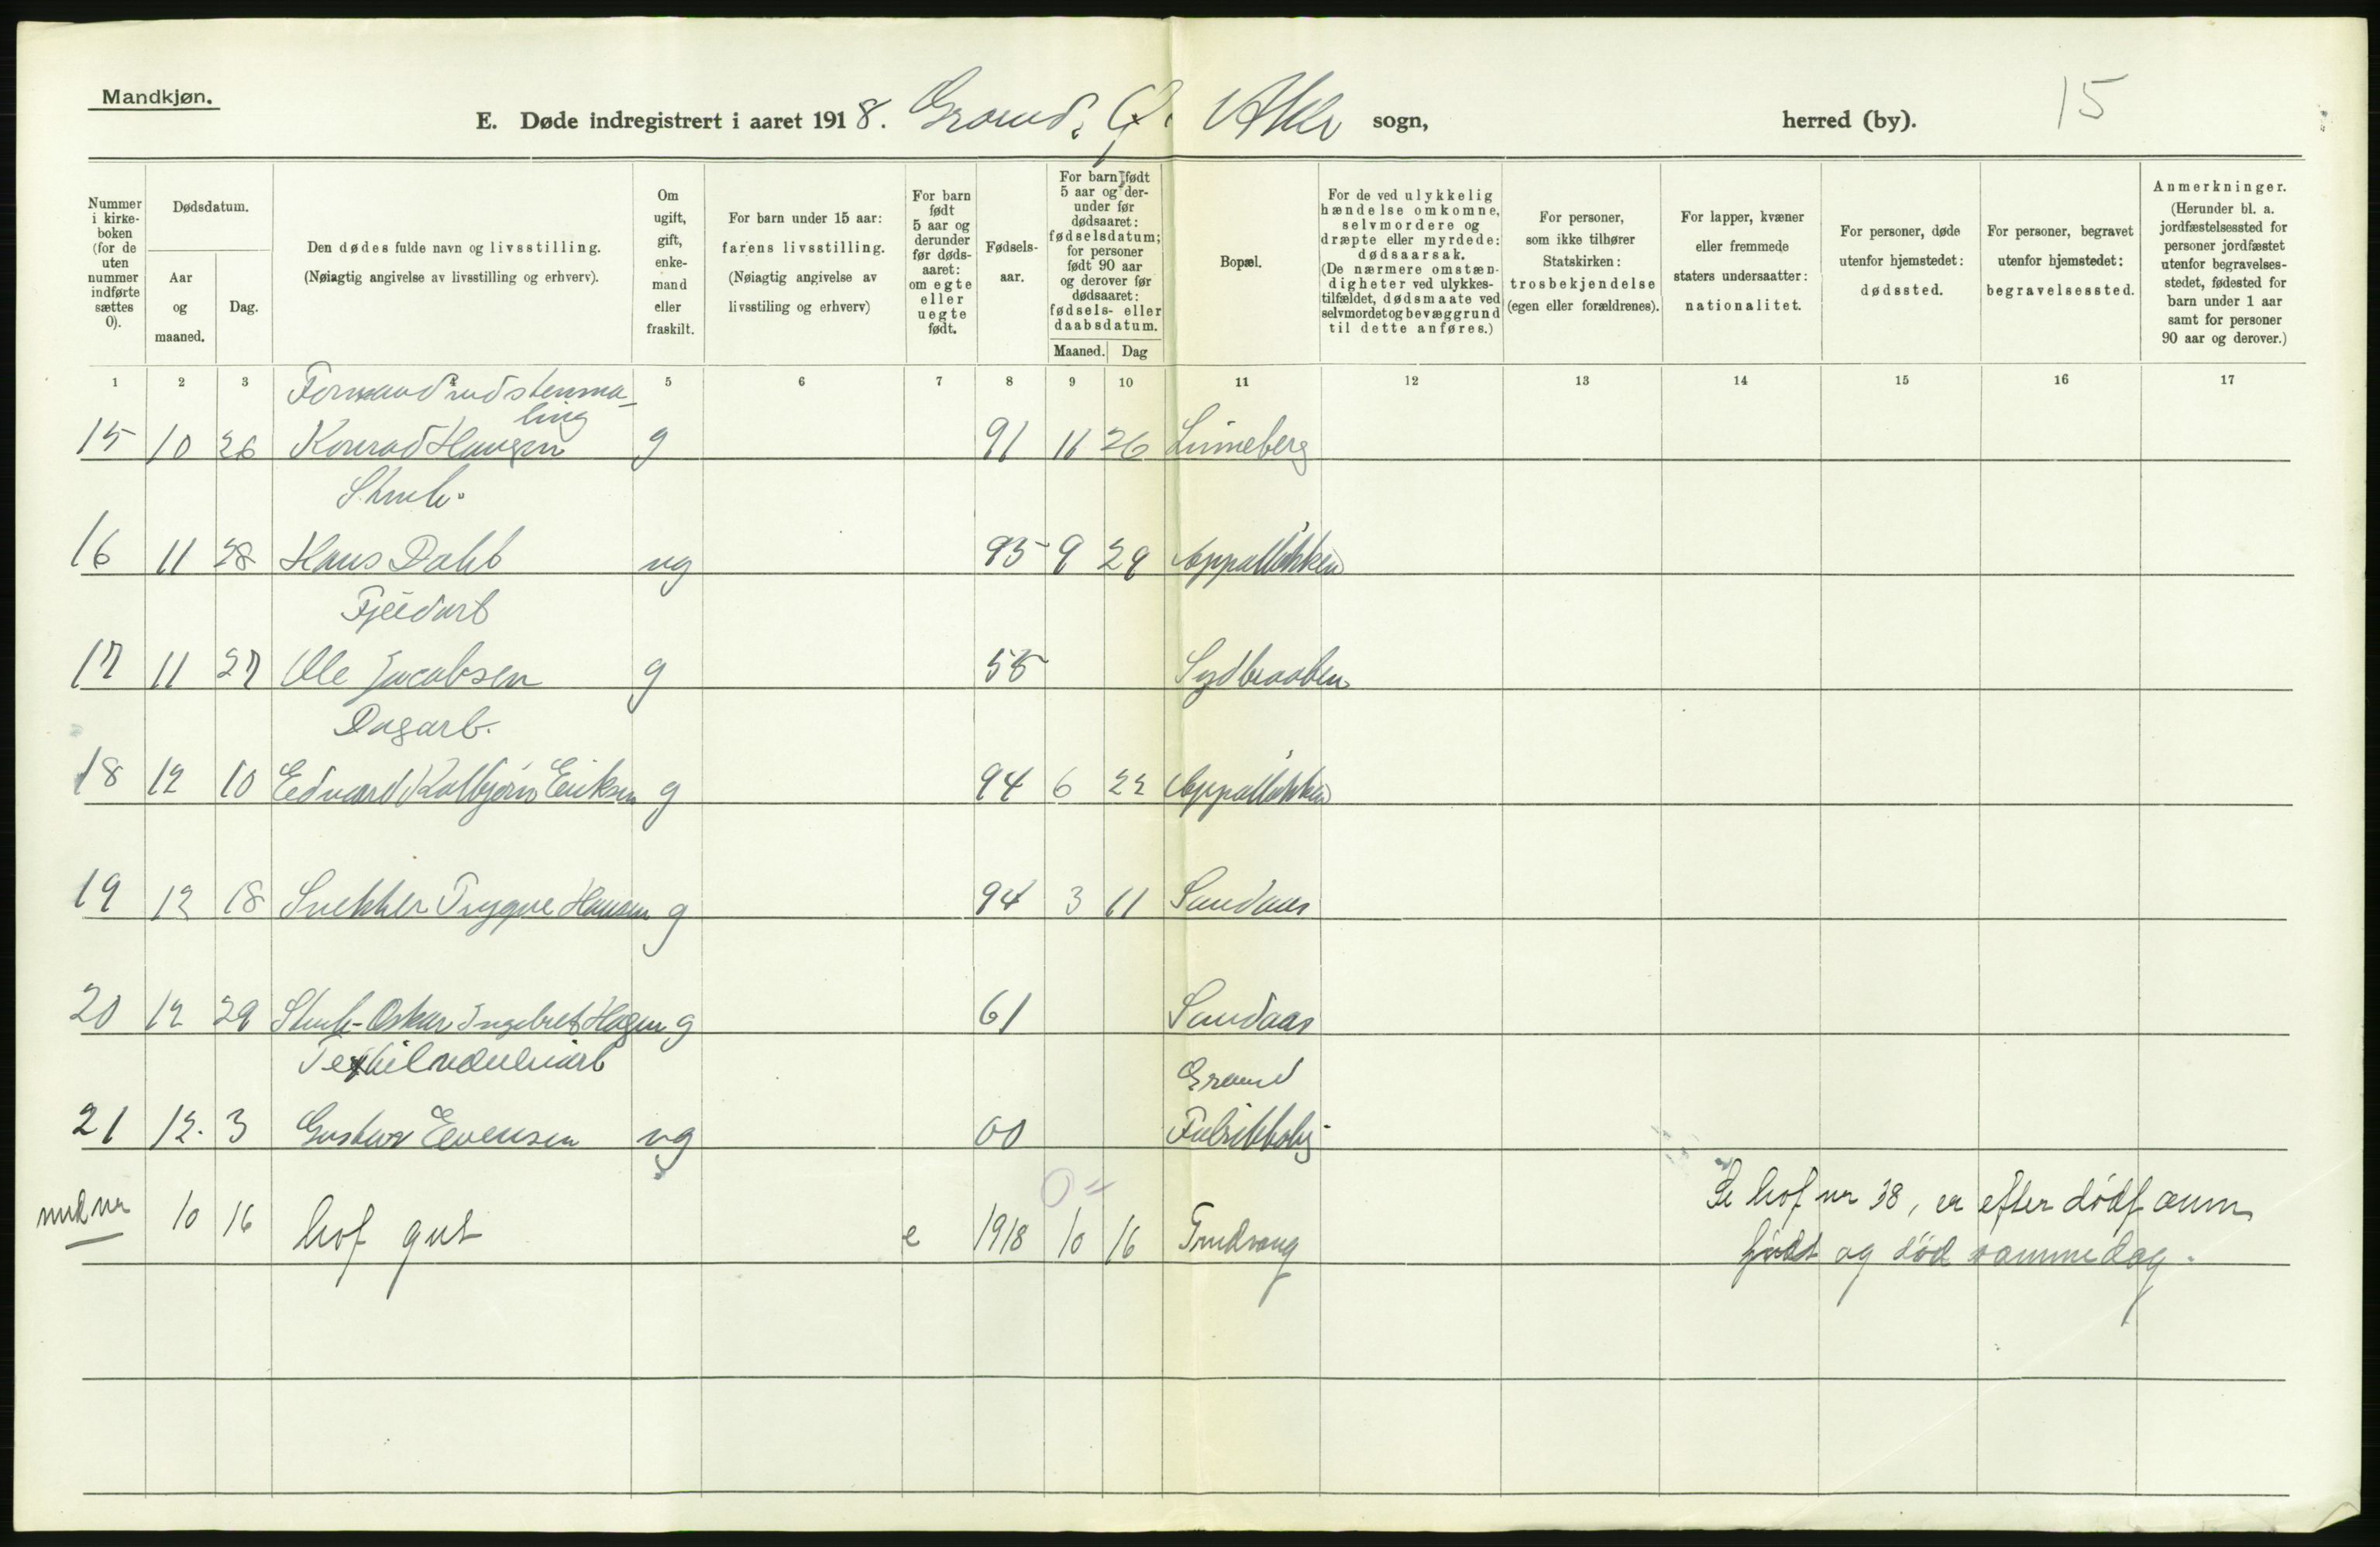 Mandkjøn.
E. Døde indregistrert i aaret 1918. Grorud, Ø. Aker sogn, herred (by). 15
Nummer i kirke-boken (for de uten nummer indførte sættes 0).
Dødsdatum.
Aar og maaned.
Dag.
Den dødes fulde navn og livsstilling.
(Nøiagtig angivelse av livsstilling og erhverv).
Om ugift, gift, enke-mand eller fraskilt.
For barn under 15 aar: farens livsstilling.
(Nøiagtig angivelse av livsstiling og erhverv)
For barn født 5 aar og derunder før døds-aaret: om egte eller uegte født.
Fødsels-aar.
For barn født 5 aar og der-under før dødsaaret: fødselsdatum; for personer født 90 aar og derover før dødsaaret: fødsels- eller daabsdatum.
Maaned. Dag
Bopæl.
For de ved ulykkelig hændelse omkomne, selvmordere og dræpte eller myrdede: dødsaarsak.
(De nærmere omstæn-digheter ved ulykkes-tilfældet, dødsmaate ved selvmordet og bevæggrund til dette anføres.)
For personer, som ikke tilhører Statskirken: trosbekjendelse (egen eller forældrenes).
For lapper, kvæner eller fremmede staters undersaatter: nationalitet.
For personer, døde utenfor hjemstedet: dødssted.
For personer, begravet utenfor hjemstedet: begravelsessted.
Anmerkninger.
(Herunder bl. a. jordfæstelsessted for personer jordfæstet utenfor begravelses-stedet, fødested for barn under 1 aar samt for personer 90 aar og derover.)
1 2 3 4 5 6 7 8 9 10 11 12 13 14 15 16 17
Formand ved stenma-
ling
15 10 26 Konrad Haugen g 91 11 26 Linneberg
Stenh.
16 11 28 Hans Dahl ug 95 9 29 Appalløkken
Fjeldarb
17 11 27 Ole Jacobsen g 55 Sydbraaten
Dagarb.
18 12 10 Edvard Kolbjørn Eriksen g 94 6 22 Appalløkken
19 12 18 Snekker Trygve Hansen g 94 3 11 Sandaas
20 12 29 Stenh- Oskar Ingebret Hagen g 61 Sandaas
Grorud
21 12. 3 Gustav Evensen ug 00 Fabrikbolig
0
10 16 hof gut e 1918 10 16 Trudvang
Se hof nr 38, er efter dødf anm
født og død samme dag.